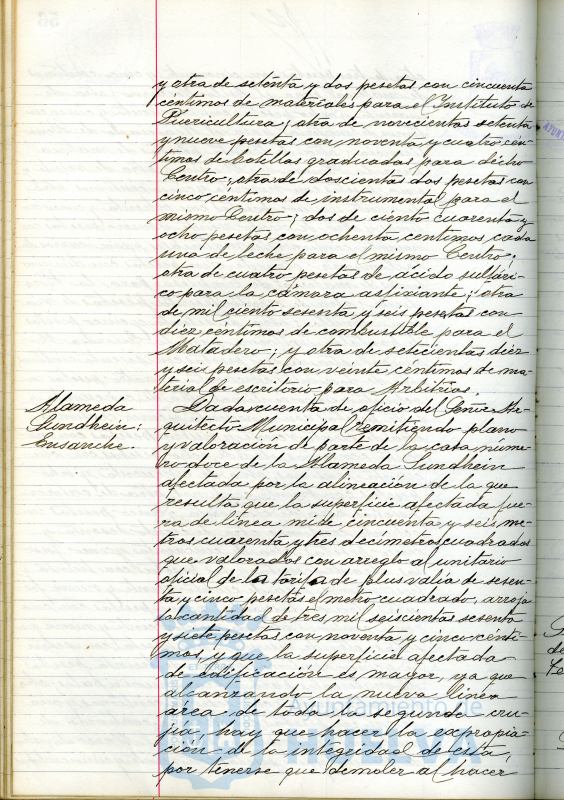 y otra de setenta y dos pesetas con cincuenta
céntimos de materiales para el Instituto de
Puericultura; otra de novecientas setenta
y nueve pesetas con noventa y cuatro cén-
timos de botellas graduadas para dicho
Centro; otra de doscientas dos pesetas con
cinco céntimos de instrumental para el
mismo Centro; dos de ciento cuarenta y
ocho pesetas con ochenta centimos cada
una de leche para el mismo Centro;
otra de cuatro pesetas de ácido sulfúri-
co para la cámara asfixiante; otra
de mil ciento sesenta y seis pesetas con
diez céntimos de combustible para el
Matadero; y otra de setecientas diez
y seis pesetas con veinte céntimos de ma-
terial de escritorio para Arbitrios.
Alameda
Sundhein:
Ensanche.
Dada cuenta de oficio del Señor Ar-
quitecto Municipal remitiendo plano
y valoración de parte de la casa núme-
ro doce de la Alameda Sundhein
afectada por la alineación de la que
resulta que la superficie afectada fue-
ra de linea mide cincuenta y seis me-
tros cuarenta y tres decímetros cuadrados
que valorados con arreglo al unitario
oficial de la tarifa de plus valia de sesen-
ta y cinco pesetas el metro cuadrado, arroja
la cantidad de tres mil seiscientas sesenta
y siete pesetas con noventa y cinco centi-
mos, y que la superficie afectada
de edificación es mayor, ya que
alcanzando la nueva linea
área de toda la segunda cru-
jia, hay que hacer la expropia-
ción de la integridad de esta,
por tenerse que demoler al hacer
Ayuntamiento de
HUELVA